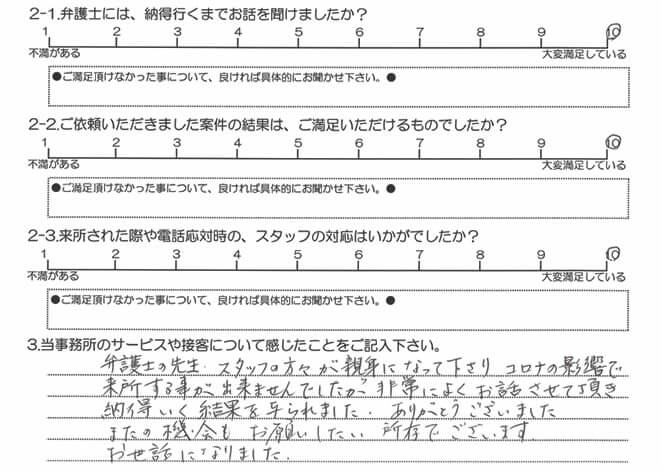 2-1.弁護士には、納得行くまでお話を聞けましたか?
1 2 3 4 5 6 7 8 9 10
不満がある 大変満足している
●ご満足頂けなかった事について、良ければ具体的にお聞かせ下さい。●
2-2.ご依頼いただきました案件の結果は、ご満足いただけるものでしたか?
1 2 3 4 5 6 7 8 9 10
不満がある 大変満足している
●ご満足頂けなかった事について、良ければ具体的にお聞かせ下さい。●
2-3.来所された際や電話応対時の、スタッフの対応はいかがでしたか?
1 2 3 4 5 6 7 8 9 10
不満がある 大変満足している
●ご満足頂けなかった事について、良ければ具体的にお聞かせ下さい。●
3.当事務所のサービスや接客について感じたことをご記入下さい。
弁護士の先生.スタッフの方々が親身になって下さり コロナの影響で
来所する事が出来ませんでしたが 非常によくお話させて頂き
納得いく結果を得られました. ありがとうございました
またの機会も お願いしたい 所存でございます.
お世話になりました.